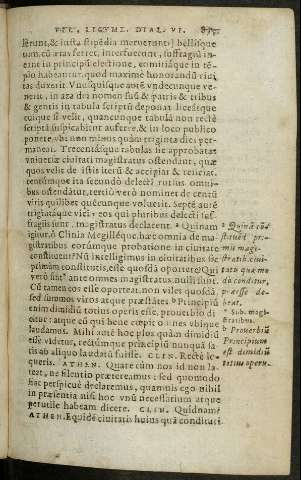 VEL, LEGVM. DIAL. VI.
serunt, & iusta stipēdia meruerunt: bellisque
eunt in principū electione, comitiisque in tē-
plo habeantur, quod maximè honorandū ciui-
tas duxerit. Vnusquisque autē vndecunque ve-
nerit, in ara dei nomen suū & patris & tribus
& gentis in tabula scriptū deponat: liceatque
cuique si velit, quancunque tabulā non rectè
scriptā suspicabitur auferre, & in loco publico
ponere, vbi non minus quàm triginta diei per-
maneat. Trecentásque tabulas sic approbatas
vniuersæ ciuitati magistratus ostendant, quæ
quos velit de istis iterū & accipiat & reiiciat.
centúmque ita secundò delecti rursus omni-
bus ostendātur, tertiò verò nominet de centū
viris quilibet quēcunque voluerit. Septē autē
trigintáque viri, eos qui pluribus delecti suf-
fragiis sunt, magistratus declarent. Quinam
igitur, ô Clinia Megilléque, hæc omnia de ma-
gistratibus eorúmque probatione in ciuitate
constituent? Nū intelligimus in ciuitatibus sic
primùm constitutis, esse quosdā oportere? Qui
verò sint, ante omnes magistratus nulli sunt.
Cū tamen eos esse oporteat, non viles quosdā,
sed summos viros atque præstātes. Principiū
enim dimidiū totius operis esse, prouerbio di-
citur: atque eū qui bene cœpit omnes vbique
laudamus. Mihi autē hoc plus quàm dimidiū
esse videtur, rectúmque principiū nunquā sa-
tis ab aliquo laudatū fuisse. CLIN. Rectè lo-
queris. ATHEN. Quare cùm nos id non la-
teat, ne silentio prætereamus: sed quomodo
fiat perspicuè declaremus, quamuis ego nihil
in præsentia nisi hoc vnū necessarium atque
perutile habeam dicere. CLIN. Quidnam?
ATHEN. Equidē ciuitatis huius quā conditurī
Quinā cōs
stituēdi pri-
mis magi-
strat⁹. ciui-
tati quæ mo-
dò conditur,
præesse de-
beat.
Sub. magi-
stratibus.
Prouerbiū
Principium
est dimidiū
totius operis.